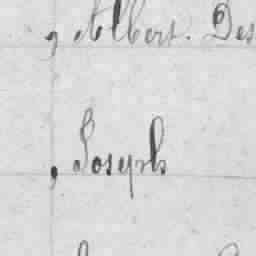 , Albert. Des
, Joseph